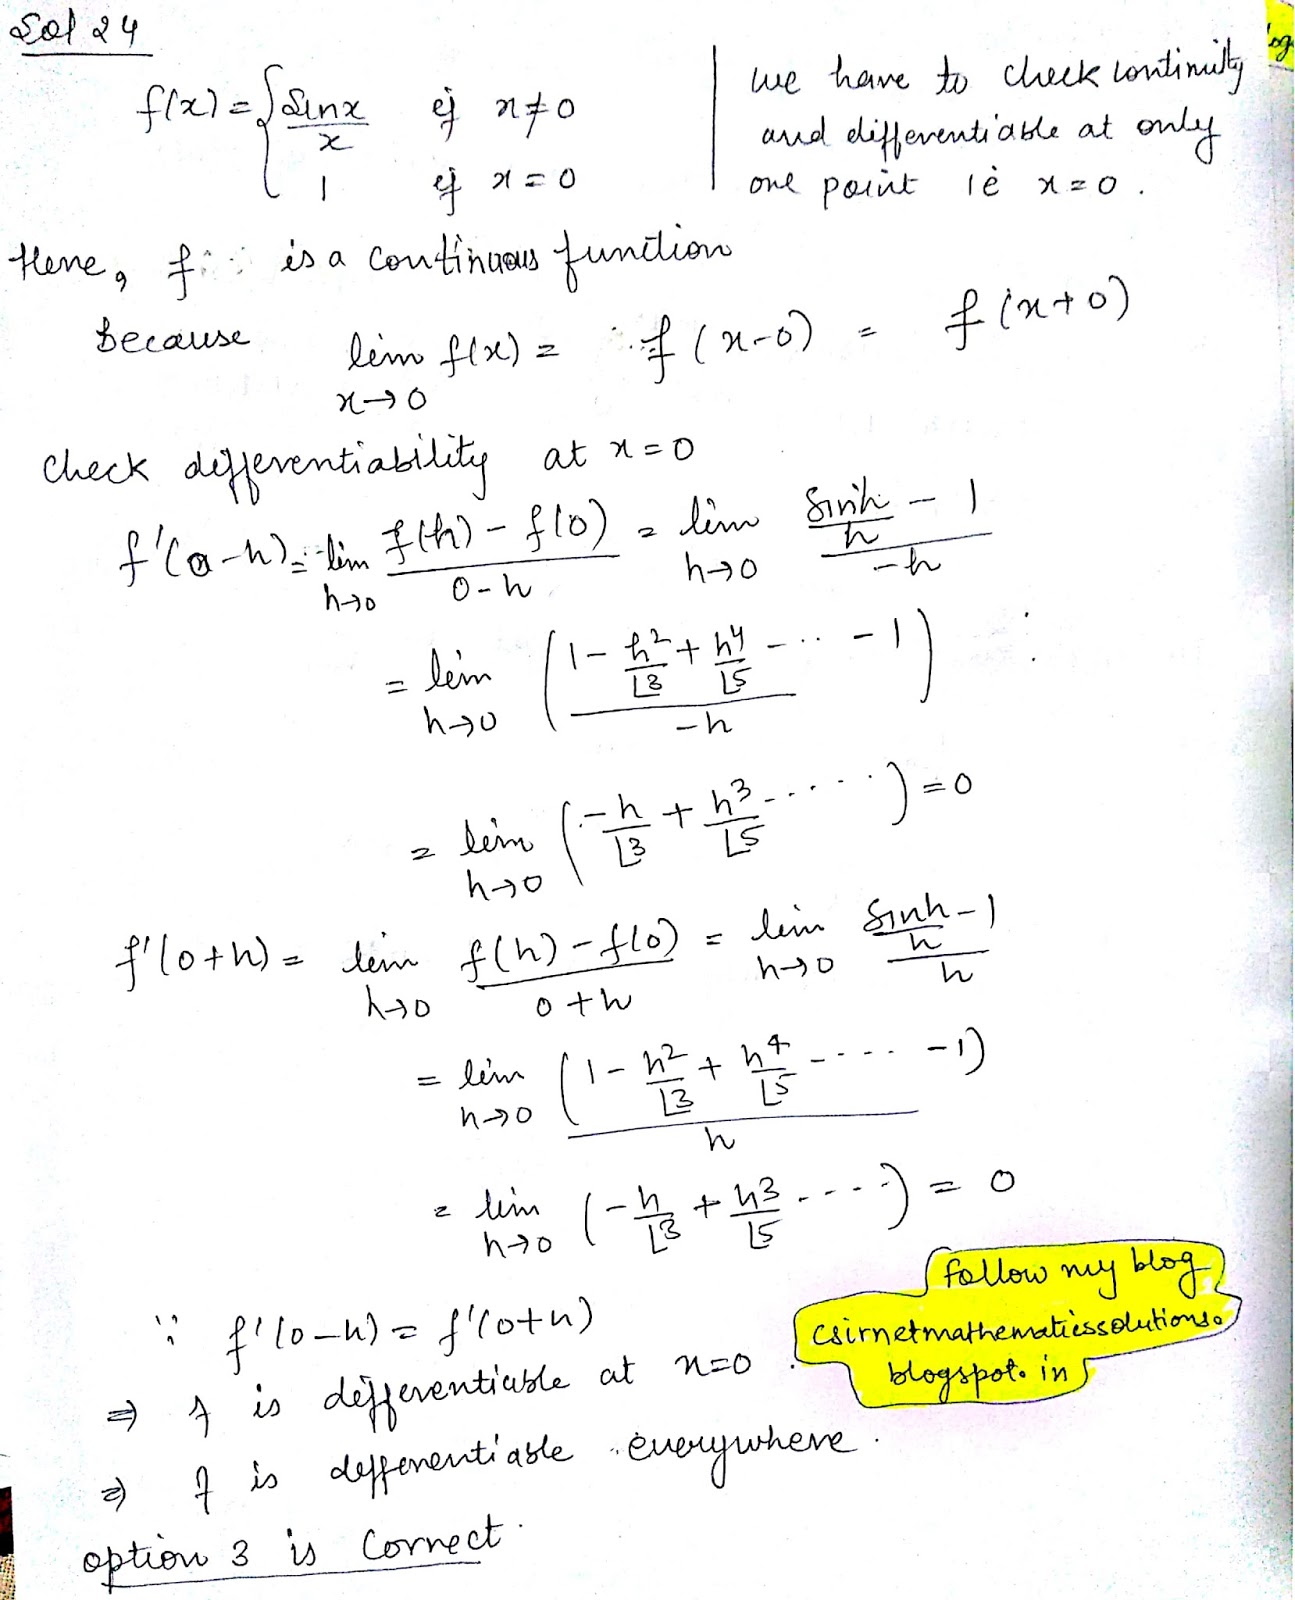 Sol 24
f(x) = { sinx/x if x≠0
1 if x=0
we have to check continuity
and differentiable at only
one point ie x=0.
Here, f is a continuous function
because lim x→0 f(x) = f(x-0) = f(x+0)
check differentiability at x=0
f'(0-h) = lim h→0 (f(h) - f(0))/(0-h) = lim h→0 (sinh/h - 1)/(-h)
= lim h→0 (1 - h²/⌊3 + h⁴/⌊5 - ... - 1)/(-h)
= lim h→0 (-h/⌊3 + h³/⌊5 ......) = 0
f'(0+h) = lim h→0 (f(h) - f(0))/(0+h) = lim h→0 (sinh/h - 1)/h
= lim h→0 (1 - h²/⌊3 + h⁴/⌊5 - .... - 1)/h
= lim h→0 (-h/⌊3 + h³/⌊5 ....) = 0
∵ f'(0-h) = f'(0+h)
⇒ f is differentiable at x=0.
⇒ f is differentiable everywhere.
option 3 is correct.
follow my blog
csirnetmathematicssolutions.
blogspot.in